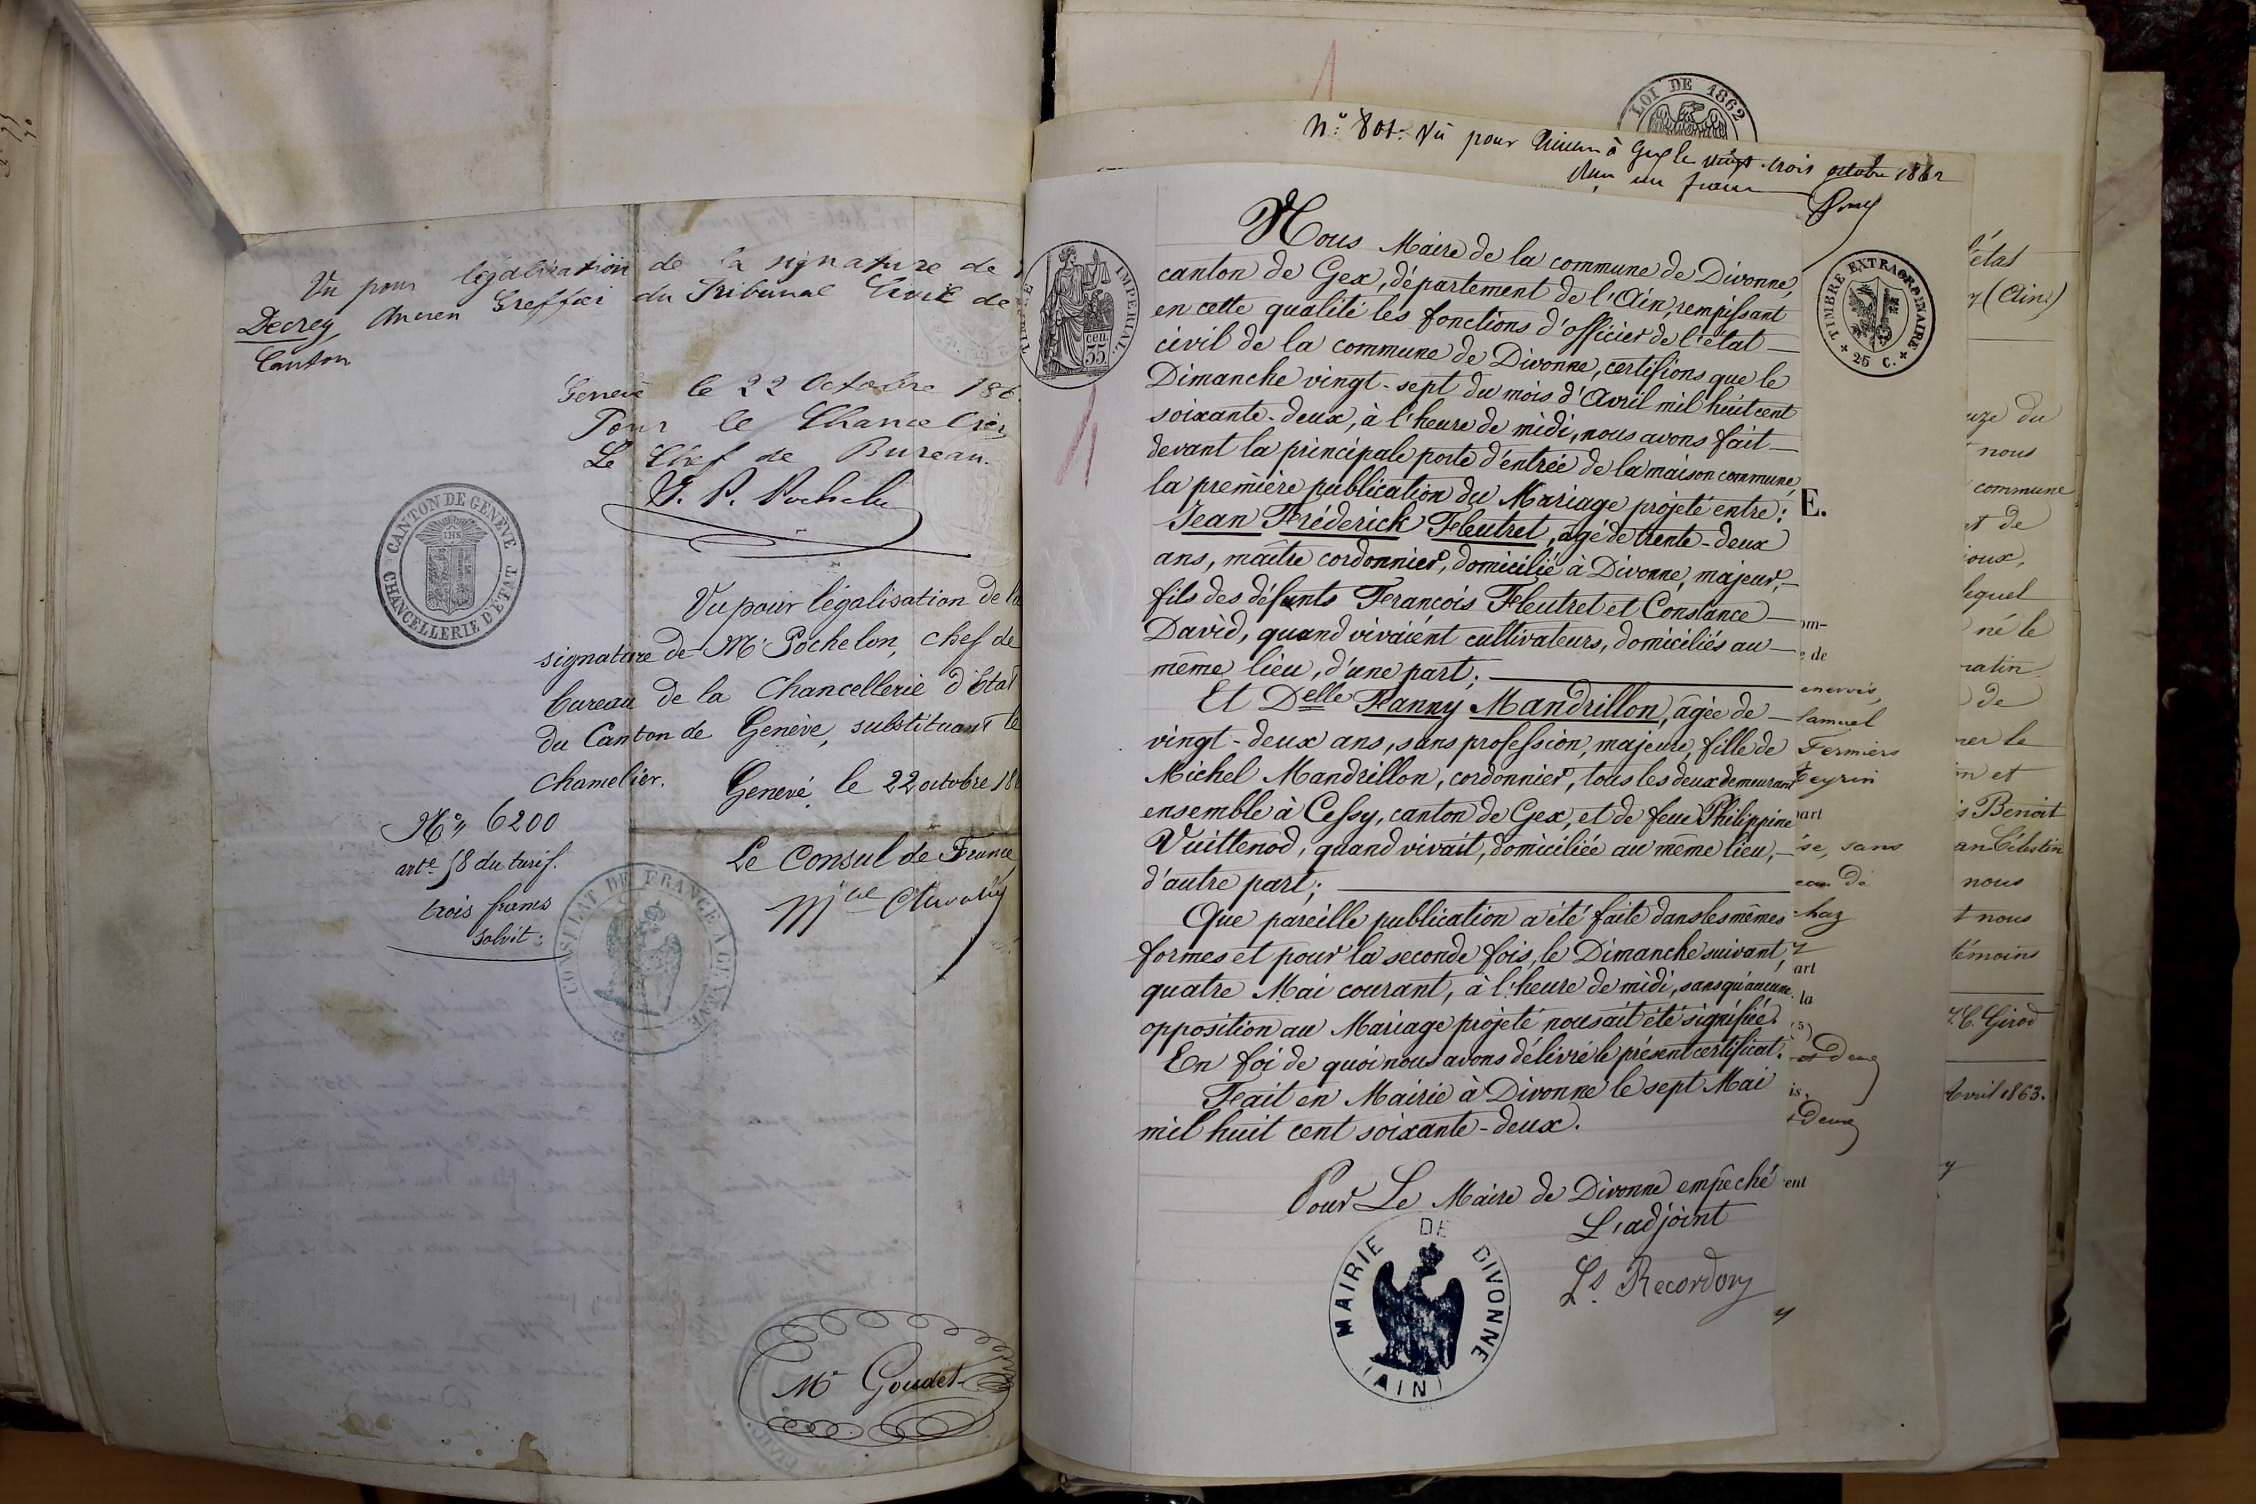 Vu pour légalisation de la signature de
Decrey, Ancien Greffier du Tribunal Civil de
Canton
Genève le 22 Octobre 186
Pour le Chancelier,
Le Chef de Bureau.
CANTON DE GENÈVE
IHS
CHANCELLERIE D'ETAT
Vu pour légalisation de la
signature de Mr Pochelon, chef de
bureau de la chancellerie d'Etat
du Canton de Genève, substituant le
chancelier.
Genève, le 22 octobre 18
No 6200
arte 58 du tarif.
trois francs
solvit:
Le Consul de France
CONSULAT DE FRANCE A GENEVE
Mr Goudet
LOI DE 1862
No 801. Vu pour à Gex le vingt-trois octobre 1862
un franc
TIMBRE IMPERIAL
cen.
35
TIMBRE EXTRAORDINAIRE
25 C.
Nous Maire de la commune de Divonne,
canton de Gex, département de l'Ain, remplissant
en cette qualité les fonctions d'officier de l'état
civil de la commune de Divonne, certifions que le
Dimanche vingt-sept du mois d'Avril mil huit cent
soixante-deux, à l'heure de midi, nous avons fait
devant la principale porte d'entrée de la maison commune,
la première publication du Mariage projeté entre:
Jean Fréderick Fleutret, âgé de trente-deux
ans, maître cordonnier, domicilié à Divonne, majeur,
fils des défunts François Fleutret et Constance
David, quand vivaient cultivateurs, domiciliés au
même lieu, d'une part;
Et Delle Fanny Mandrillon, âgée de
vingt-deux ans, sans profession, majeure, fille de
Michel Mandrillon, cordonnier, tous les deux demeurant
ensemble à Cessy, canton de Gex, et de feue Philippine
Vuittenod, quand vivait, domiciliée au même lieu,
d'autre part;
Que pareille publication a été faite dans les mêmes
formes et pour la seconde fois, le Dimanche suivant,
quatre Mai courant, à l'heure de midi, sans qu'aucune
opposition au Mariage projeté nous ait été signifiée.
En foi de quoi nous avons délivré le présent certificat.
Fait en Mairie à Divonne le sept Mai
mil huit cent soixante-deux.
Pour Le Maire de Divonne empêché
L'adjoint
Ls. Recordon
MAIRIE DE DIVONNE
(AIN)
E.
om-
e de
Samuel
Fermiers
Meyrin
part
sé, sans
de
chaz
art
la
Deux
is.
Deux
ent
l'état
(Ain)
uze du
nous
commune
et de
joux,
lequel
né le
matin
de
mer le
et
Benoit
an Célestin
nous
t nous
témoins
Girod
Avril 1863.